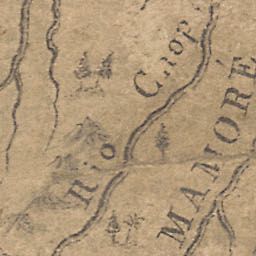 Rio Chop
MAMORÉ